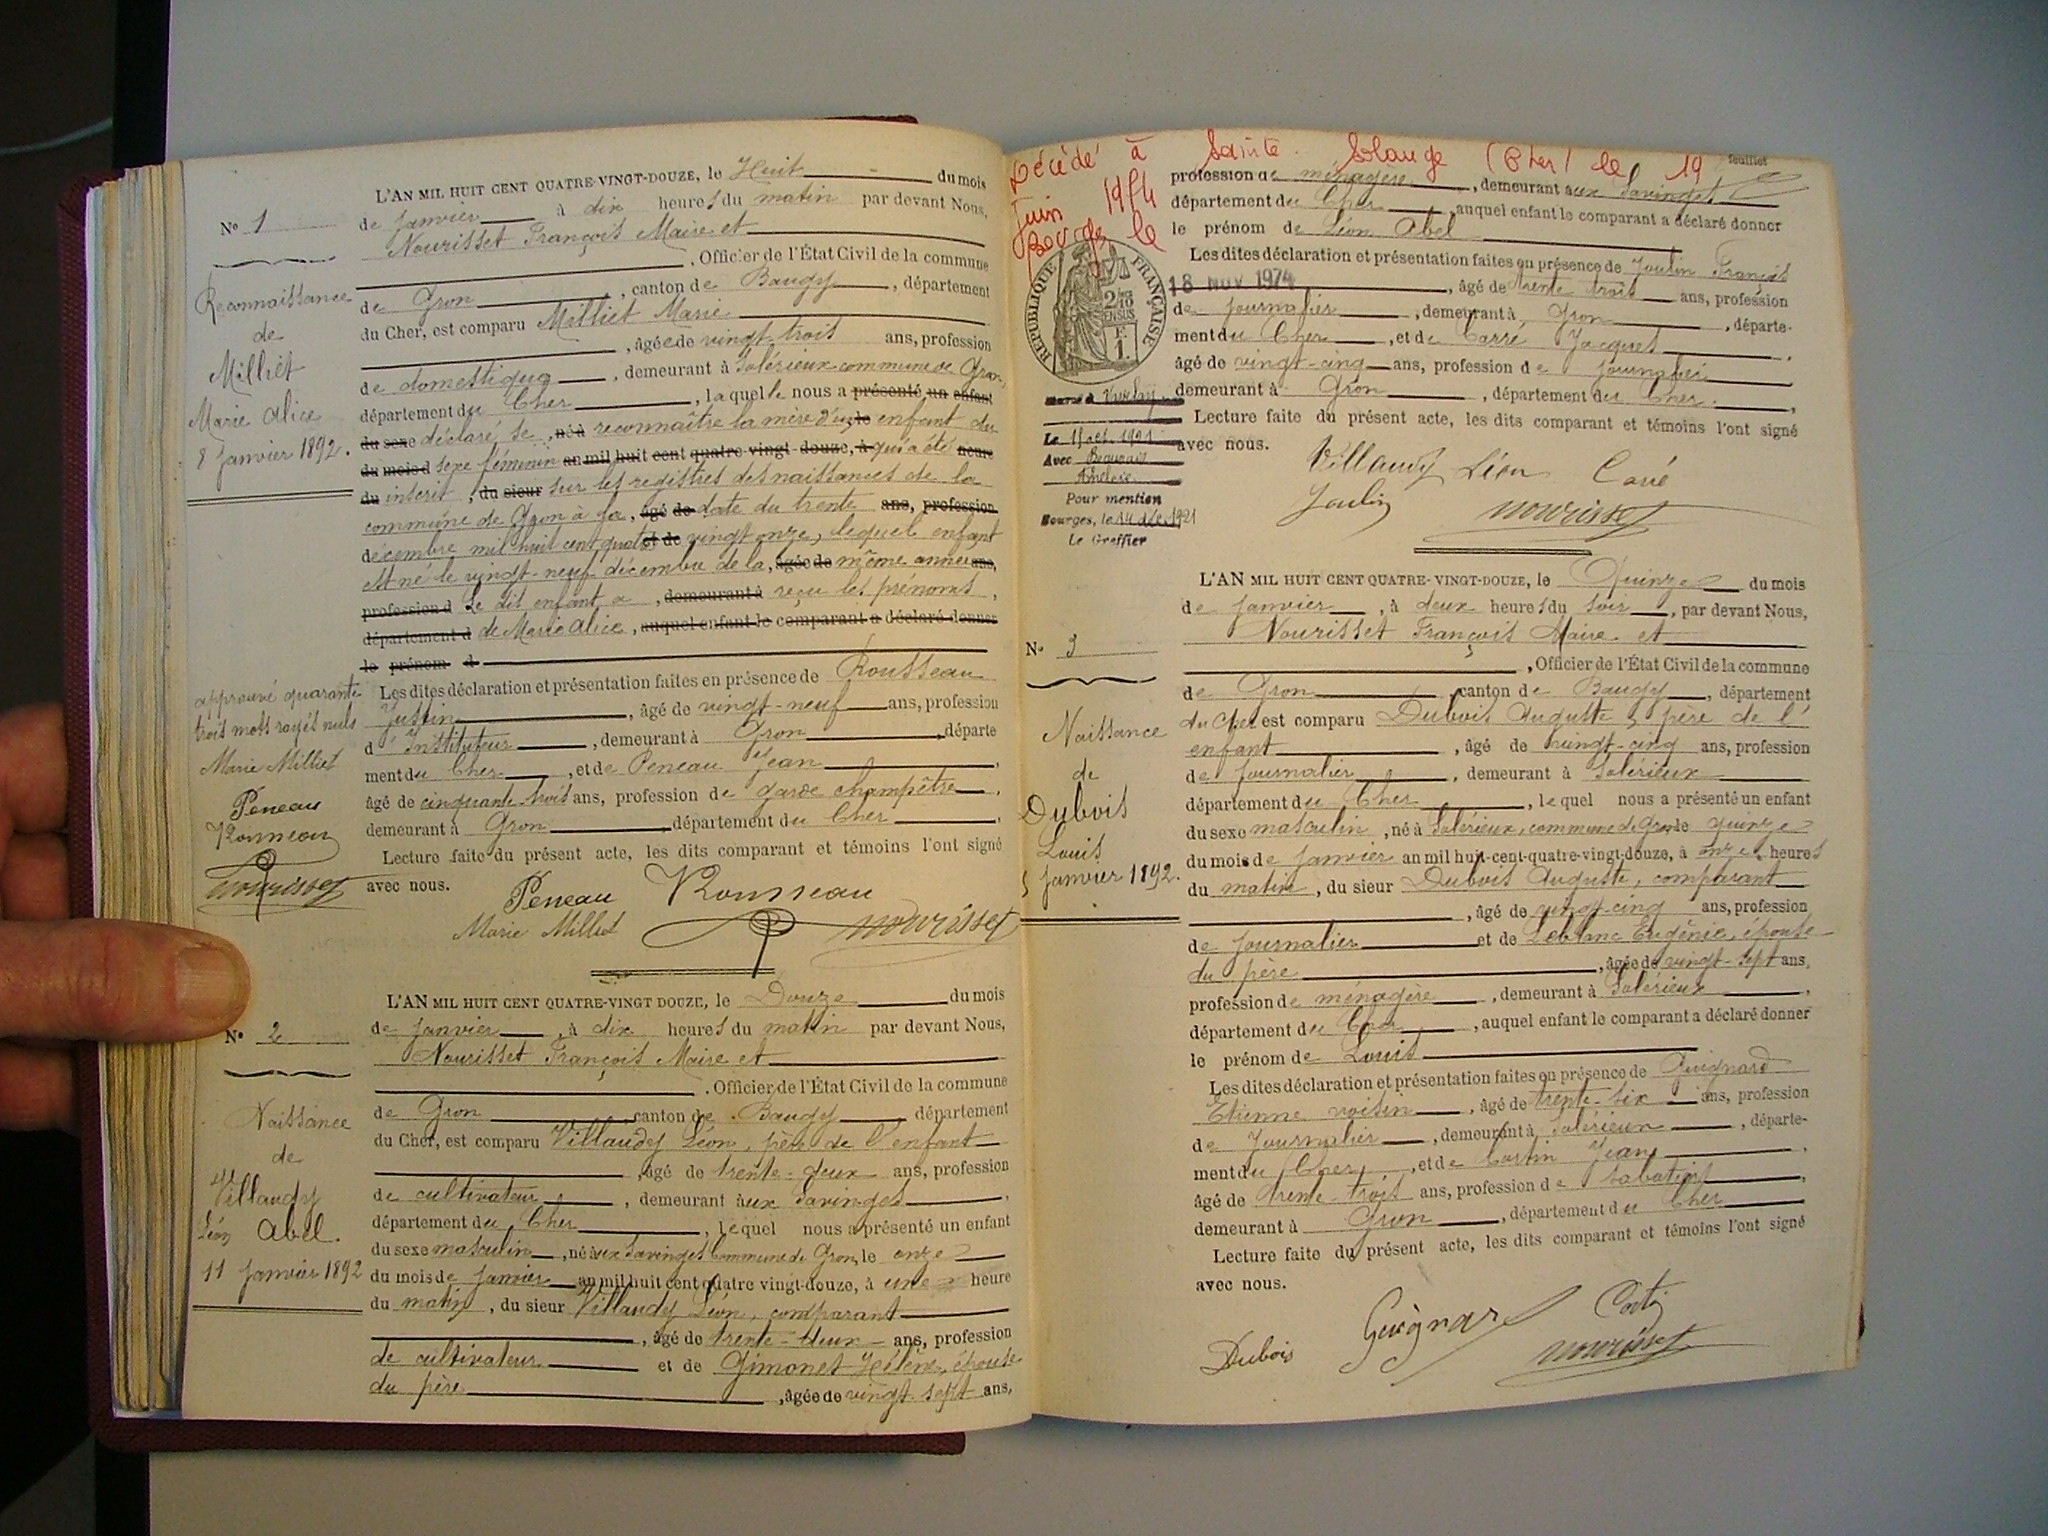 N° 1
Reconnaissance
de
Milliet
Marie Alice
8 Janvier 1892.
L'AN MIL HUIT CENT QUATRE-VINGT-DOUZE, le Huit du mois
de Janvier à dix heures du matin par devant Nous,
Nourisset François Maire et
, Officier de l'État Civil de la commune
de Gron, canton de Baugy, département
du Cher, est comparu Milliet Marie
, âgée de vingt-trois ans, profession
de domestique, demeurant à Salérieux commune de Gron,
département du Cher, laquelle nous a présenté un enfant
du sexe déclaré se, né à reconnaître la mère d'un le enfant du
du mois d sexe féminin an mil huit cent quatre-vingt-douze, à qui a été heure
du inscrit, du sieur sur les registres des naissances de la
commune de Gron à la, âgé de date du trente ans, profession
décembre mil huit cent quatre et de vingt onze, lequel enfant
est né le vingt-neuf décembre de la, âgée de même année ans,
profession d Le dit enfant a, demeurant à reçu les prénoms,
département d de Marie Alice, auquel enfant le comparant a déclaré donner
le prénom d
Les dites déclaration et présentation faites en présence de Rousseau
Justin, âgé de vingt-neuf ans, profession
d'Instituteur, demeurant à Gron, départe
ment du Cher, et de Peneau Jean,
âgé de cinquante trois ans, profession de garde champêtre,
demeurant à Gron département du Cher,
Lecture faite du présent acte, les dits comparant et témoins l'ont signé
avec nous.
approuvé quarante
trois mots rayés nuls
Marie Milliet
Peneau
Rousseau
Nourisset
Peneau Rousseau
Marie Milliet Nourisset
N° 2
Naissance
de
Villaudy
Léon Abel.
11 Janvier 1892
L'AN MIL HUIT CENT QUATRE-VINGT DOUZE, le Douze du mois
de Janvier, à dix heures du matin par devant Nous,
Nourisset François Maire et
. Officier de l'État Civil de la commune
de Gron, canton de Baugy, département
du Cher, est comparu Villaudy Léon, père de l'enfant
, âgé de trente-deux ans, profession
de cultivateur, demeurant aux Savinges,
département du Cher, lequel nous a présenté un enfant
du sexe masculin, né aux Savinges Commune de Gron, le onze
du mois de Janvier an mil huit cent quatre vingt-douze, à une heure
du matin, du sieur Villaudy Léon, comparant
, âgé de trente-deux ans, profession
de cultivateur et de Gimonet Hélène, épouse
du père, âgée de vingt sept ans,
Décédé à Sainte-Solange (Cher) le 19
Juin 1974
Bourges le
18 NOV 1974
feuillet
profession de ménagère, demeurant aux Savinges
département du Cher, auquel enfant le comparant a déclaré donner
le prénom de Léon Abel
Les dites déclaration et présentation faites en présence de Joulin François
, âgé de trente trois ans, profession
de journalier, demeurant à Gron, départe-
ment du Cher, et de Carré Jacques,
âgé de vingt-cinq ans, profession de journalier
demeurant à Gron, département du Cher.,
Lecture faite du présent acte, les dits comparant et témoins l'ont signé
avec nous.
RÉPUBLIQUE FRANÇAISE
2/10 EN SUS
F.
1.
Marié à
Le 11 oct. 1921
Avec
Pour mention
Bourges, le 14 déc. 1921
Le Greffier
Villaudy Léon Carré
Joulin Nourisset
N° 3
Naissance
de
Dubois
Louis
Janvier 1892.
L'AN MIL HUIT CENT QUATRE-VINGT-DOUZE, le Quinze du mois
de Janvier, à deux heures du soir, par devant Nous,
Nourisset François Maire et
, Officier de l'État Civil de la commune
de Gron, canton de Baugy, département
du Cher est comparu Dubois Auguste, père de l'
enfant, âgé de vingt-cinq ans, profession
de journalier, demeurant à Salérieux
département du Cher, lequel nous a présenté un enfant
du sexe masculin, né à Salérieux, commune de Gron le quinze
du mois de Janvier an mil huit-cent-quatre-vingt-douze, à onze heures
du matin, du sieur Dubois Auguste, comparant
, âgé de vingt-cinq ans, profession
de journalier et de Leblanc Eugénie, épouse
du père, âgée de vingt-sept ans,
profession de ménagère, demeurant à Salérieux,
département du Cher, auquel enfant le comparant a déclaré donner
le prénom de Louis
Les dites déclaration et présentation faites en présence de Guignard
Etienne voisin, âgé de trente-six ans, profession
de journalier, demeurant à Salérieux, départe-
ment du Cher, et de Cortin Jean,
âgé de trente-trois ans, profession de sabotier,
demeurant à Gron, département du Cher
Lecture faite du présent acte, les dits comparant et témoins l'ont signé
avec nous.
Dubois Guignard Nourisset